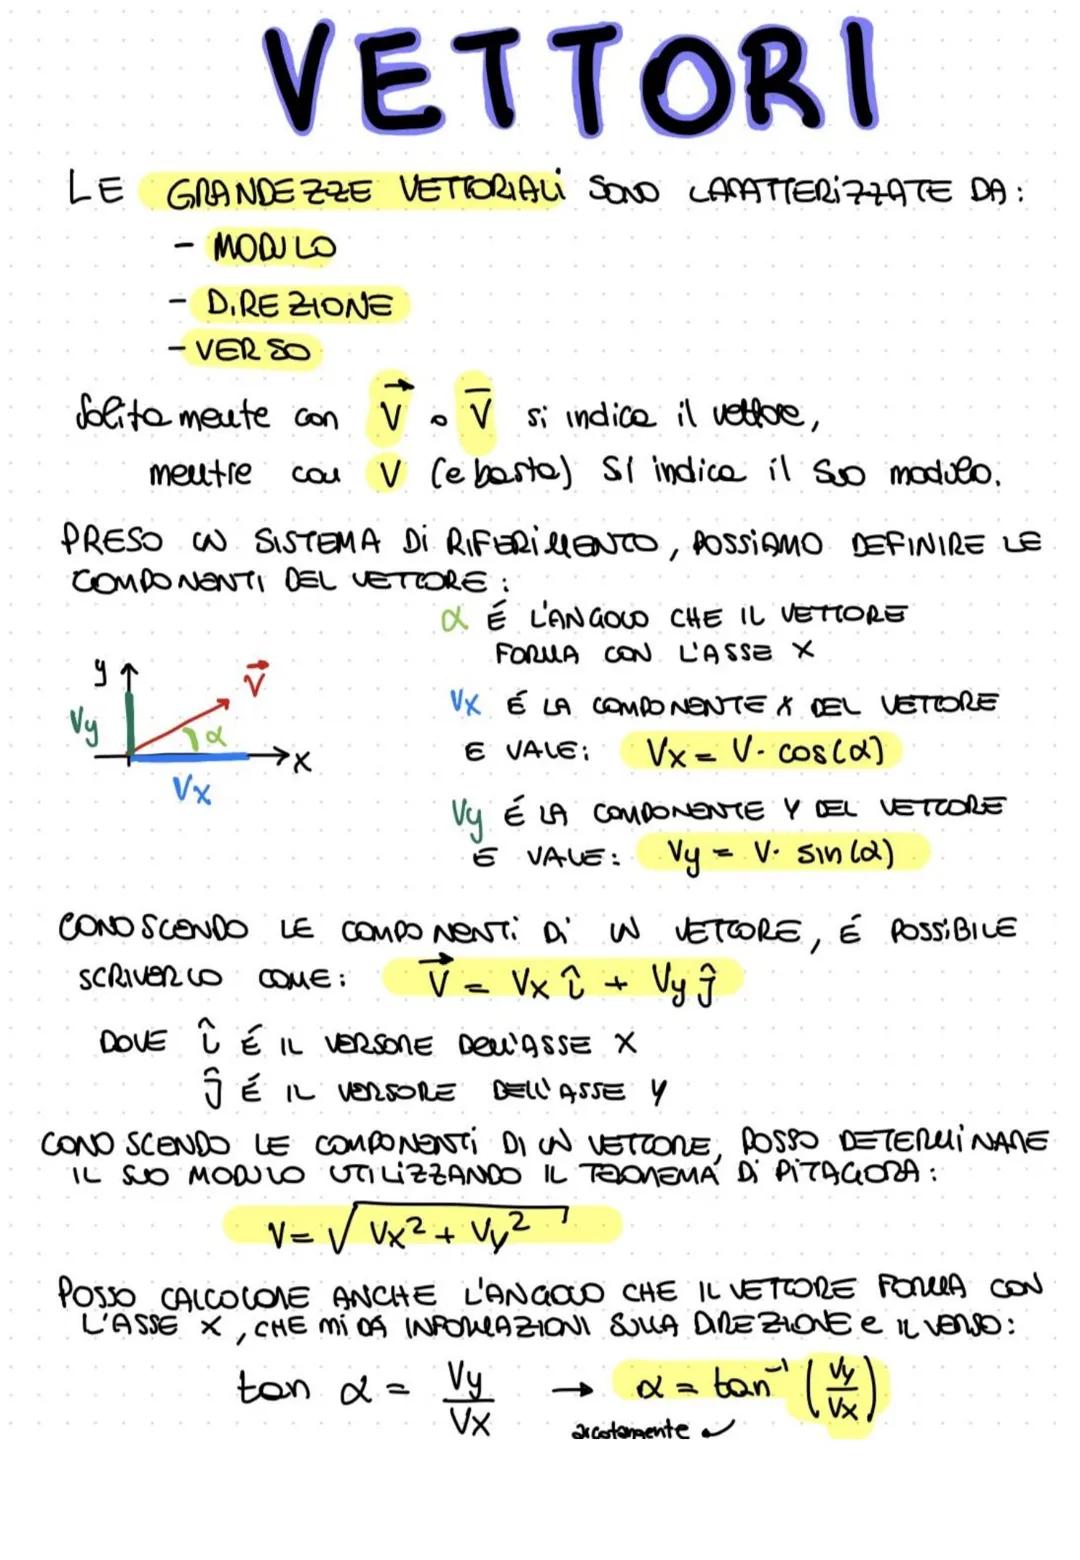 VETTORI
LE GRANDEZZE VETTORIALI SONO CARATTERIZZATE DA:
- MODULO
- DIREZIONE
- VERSO
Solitamente con V⃗ o V̅ si indica il vettore,
mentre con V (e basta) SI indica il suo modulo.
PRESO UN SISTEMA DI RIFERIMENTO, POSSIAMO DEFINIRE LE
COMPONENTI DEL VETTORE:
α É L'ANGOLO CHE IL VETTORE
FORMA CON L'ASSE X
y
V⃗
Vy
α
x
Vx
Vx É LA COMPONENTE X DEL VETTORE
E VALE: Vx = V· cos(α)
Vy É LA COMPONENTE Y DEL VETTORE
E VALE: Vy = V· sin(α)
CONOSCENDO LE COMPONENTI DI UN VETTORE, É POSSIBILE
SCRIVERLO COME: V⃗ = Vx î + Vy ĵ
DOVE î É IL VERSORE DELL'ASSE X
ĵ É IL VERSORE DELL'ASSE Y
CONOSCENDO LE COMPONENTI DI UN VETTORE, POSSO DETERMINARE
IL SUO MODULO UTILIZZANDO IL TEOREMA DI PITAGORA:
V = √(Vx² + Vy²)
POSSO CALCOLARE ANCHE L'ANGOLO CHE IL VETTORE FORMA CON
L'ASSE X, CHE MI DÁ INFORMAZIONI SULLA DIREZIONE e IL VERSO:
tan α = Vy/Vx → α = tan⁻¹ (Vy/Vx)